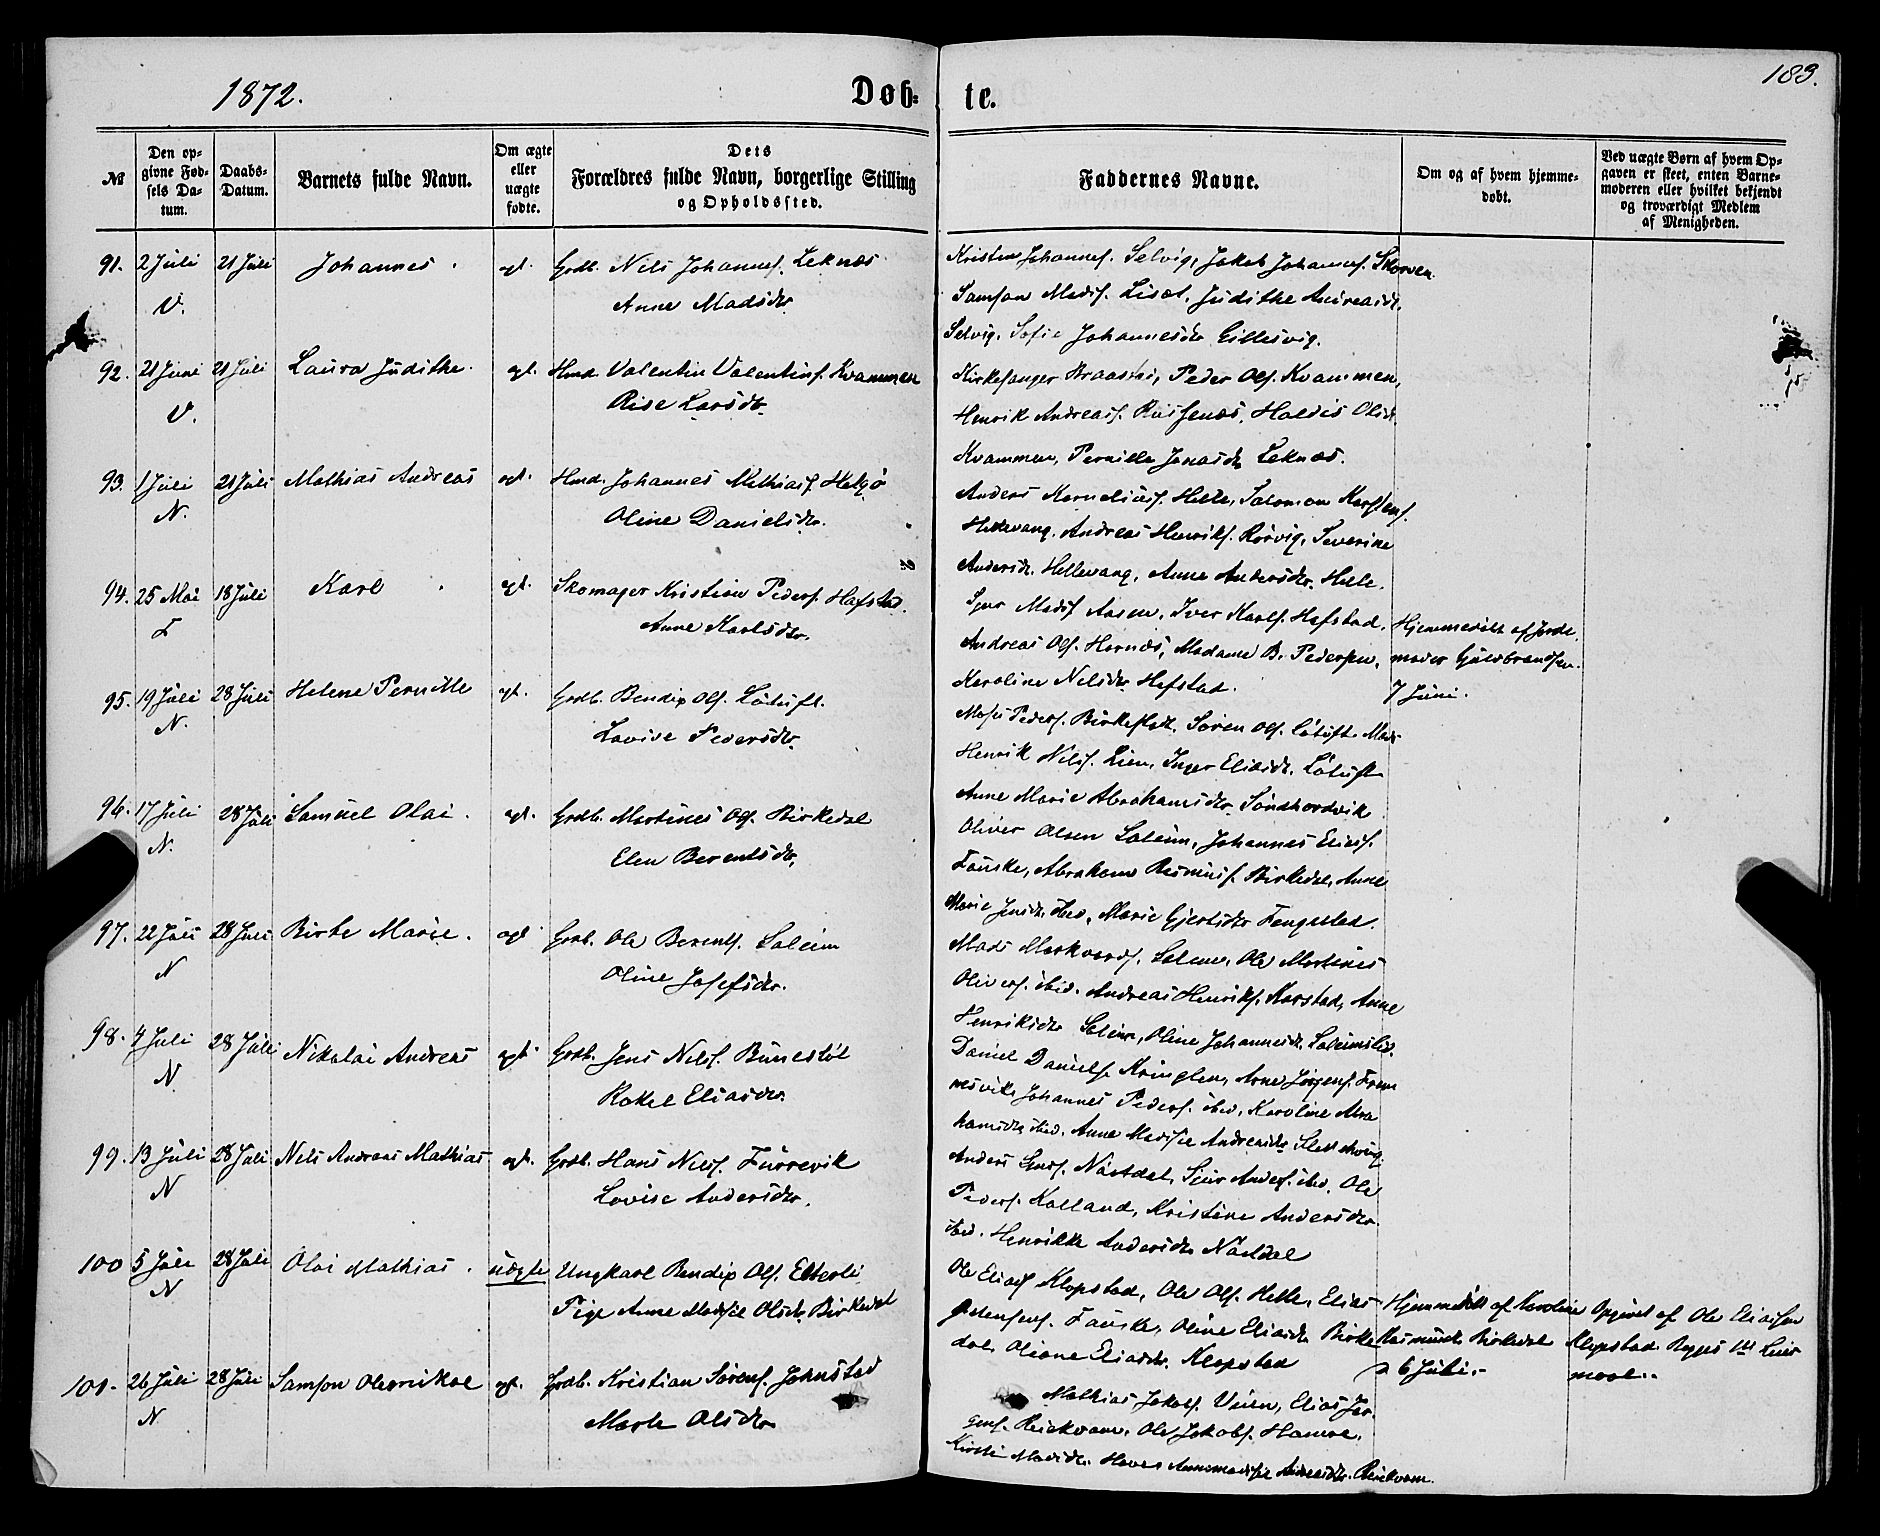 1872.
Døb=
te.
183.
№
Den op-
givne Fød-
sels Da-
tum.
Daabs-
Datum.
Barnets fulde Navn.
Om ægte
eller
uægte
fødte.
Dets
Forældres fulde Navn, borgerlige Stilling
og Opholdssted.
Faddernes Navne.
Om og af hvem hjemme-
døbt.
Ved uægte Børn af hvem Op-
gaven er skeet, enten Barne-
moderen eller hvilket bekjendt
og troværdigt Medlem
af Menigheden.
91. 2 Juli 21 Juli Johannes. ægt. Grdb. Nils Johannes. Leknæs
V. Anne Madsdr.
Kristen Johannes. Selvig, Jakob Johannes. Skorven
Samson Mads. Liset, Judithe Andreasdr.
Selvig, Sofie Johannesdr Gillesvig.
92. 21 Juni 21 Juli Laura Judithe. ægt. Hmd. Valentin Valentins. Kvammen
V. Rise Larsdr.
Kirkesanger Braastad, Peder Ols. Kvammen,
Henrik Andreass. Risnæs, Haldis Olsdr.
Kvammen, Pernille Jonasdr Leknæs.
93. 1 Juli 21 Juli Mathias Andreas ægt. Hmd. Johannes Mathias. Helgø
N. Oline Danielsdr.
Anders Kornelius. Helle, Salomon Karstens.
Hellevang, Andreas Henriks. Rørvig, Severine
Andersdr. Hellevang, Anne Andersdr. Helle.
94. 25 Mai 18 Juli Karl ægt. Skomager Kristian Peders. Hafstad.
F Anne Karlsdr.
Sjur Mads. Aasen, Iver Karls. Hafstad,
Andreas Ols. Hornæs, Madame B. Pedersen,
Karoline Nilsdr Hafstad.
Hjemmedøbt af Jorde-
moder Guldbrandsen.
7 Juni.
95. 19 Juli 28 Juli Helene Pernille ægt. Grdb. Bendix Ols. Løtuft.
N. Lovise Pedersdr.
Moses Peders. Birkeflot. Søren Ols. Løtuft. Mads
Henrik Nils. Lien, Inger Eliasdr. Løtuft
Anne Marie Abrahamsdr. Søndhordvik
96. 17 Juli 28 Juli Samuel Olai. ægt. Grdb. Martines Ols. Birkedal
N. Elen Berentsdr.
Oliver Olsen Saleim, Johannes Elias.
Fauske, Abraham Rasmus. Birkedal, Anne
Marie Jensdr. ibid, Marie Gjertsdr Tengestad.
97. 22 Juli 28 Juli Birte Marie. ægt Grdb. Ole Berents. Saleim
N Oline Josefsdr.
Mads Markvards. Saleim, Ole Martines
Olivers. ibid. Andreas Henriks. Karstad, Anne
Henriksdr Saleim, Oline Johannesdr. Saleimslid.
98. 4 Juli 28 Juli Nikolai Andreas ægt Grdb. Jens Nils. Bunestøl
N Rakel Eliasdr.
Daniel Daniels. Kringlen, Arne Jørgens. Frem
nesvik, Johannes Peders. ibid, Karoline Abra
hamsdr. ibid. Anne Madsie Andreasdr
99. 13 Juli 28 Juli Nils Andreas Mathias ægt. Grdb. Hans Nils. Furrevik
N Lovise Andersdr.
Anders Nautdal, Sjur Anders. ibid. Ole
Peders. Kalland, Kristine Andersdr
ibid. Henrikke Andersdr Nautdal
100 5 Juli 28 Juli Olai Mathias. uægte Ungkarl Bendix Ols. Elterli
N Pige Anne Madsie Olsdr. Birkedal
Ole Elias. Klopstad, Ole Ols. Helle, Elias
Fauske, Oline Eliasdr Birke
dal, Oliane Eliasdr. Klopstad
Hjemmedøbt af Karoline
Rasmusdr Birkedal
d 6 Juli.
Opgivet af Ole Eliassen
Klopstad
101. 26 Juli 28 Juli Samson Olavnikal ægt. Grdb. Kristian Sørens. Johnstad
N Marte Olsdr
Mathias Jakobs. Veien, Elias Jør-
gens. Reickvam, Ole Jakobs. Hamre,
Kirsti Madsdr. Annemadsie Andreasdr. Reickvam.